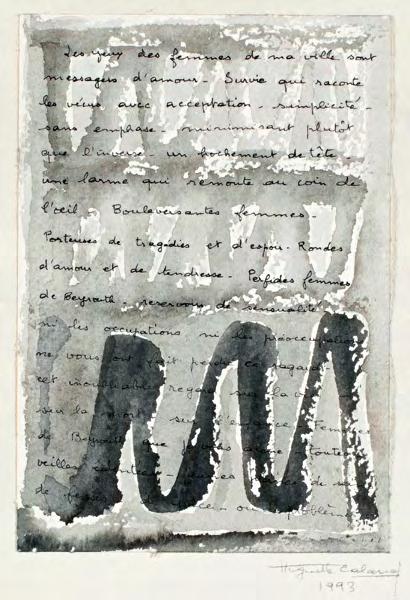 Les yeux des femmes de ma ville sont
messagers d'amour - Survie qui raconte
les vécus, avec acceptation - simplicité -
sans emphase - minimisant plutôt
que l'inverse - un hochement de tête -
une larme qui remonte au coin de
l'oeil - Bouleversantes femmes -
Porteuses de tragédies et d'espoir - Rondes
d'amour et de tendresse - Perfides femmes
de Beyrouth - réservoirs de sensualité
ni les occupations ni les préoccupations
ne vous ont fait perdre ce regard
cet inoubliable regard sur la vie
sur la mort sur l'enfance
de Beyrouth que
veilles
de
Huguette Caland
1993